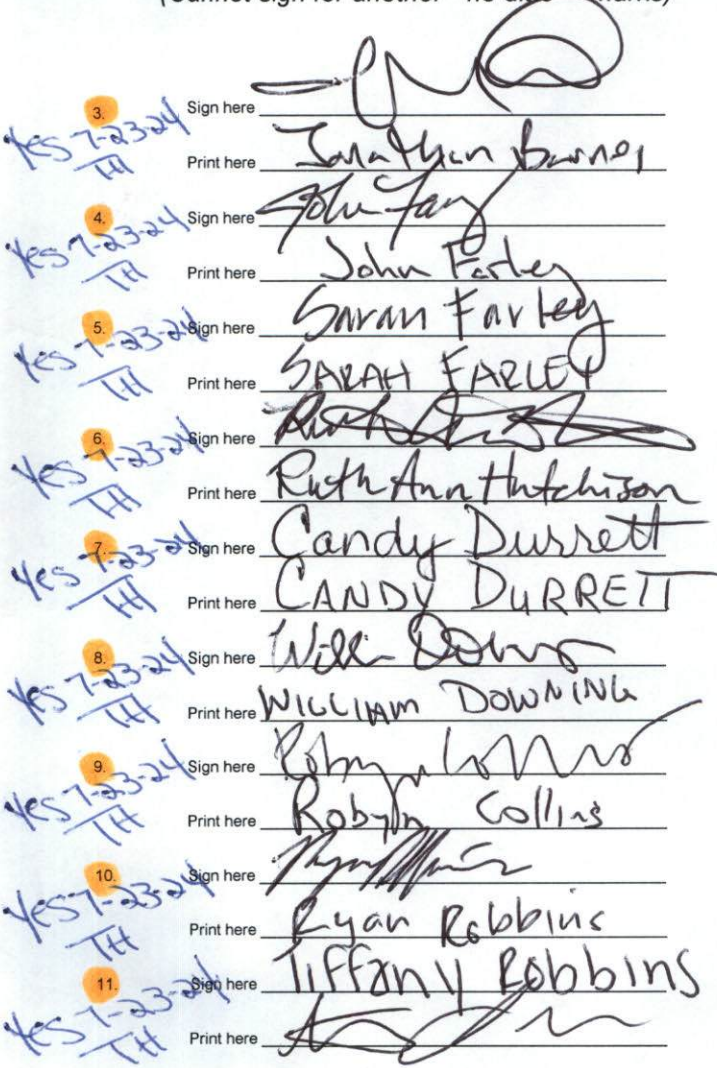 (Cannot sign for another - no
3. Sign here
Yes 7-23-24
TH
Print here Jonathan Barnes
4. Sign here John Farley
Yes 7-23-24
TH
Print here John Farley
5. Sign here Sarah Farley
Yes 7-23-24
TH
Print here SARAH FARLEY
6. Sign here
Yes 7-23-24
TH
Print here Ruth Ann Hutchison
7. Sign here Candy Durrett
Yes 7-23-24
TH
Print here CANDY DURRETT
8. Sign here
Yes 7-23-24
TH
Print here WILLIAM DOWNING
9. Sign here Robyn Collins
Yes 7-23-24
TH
Print here Robyn Collins
10. Sign here
Yes 7-23-24
TH
Print here Ryan Robbins
11. Sign here Tiffany Robbins
Yes 7-23-24
TH
Print here